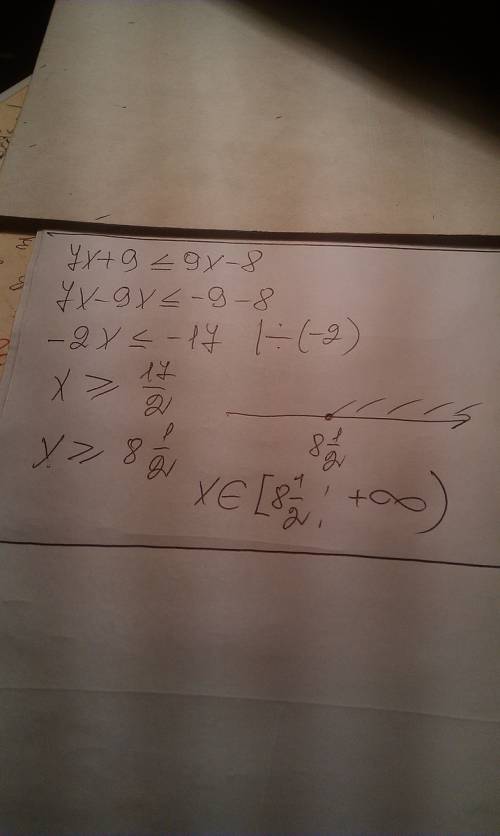 7x+9 ≤ 9x-8
7x-9x ≤ -9-8
-2x ≤ -17 |÷(-2)
x ≥ 17/2
x ≥ 8 1/2
8 1/2
x ∈ [8 1/2; +∞)